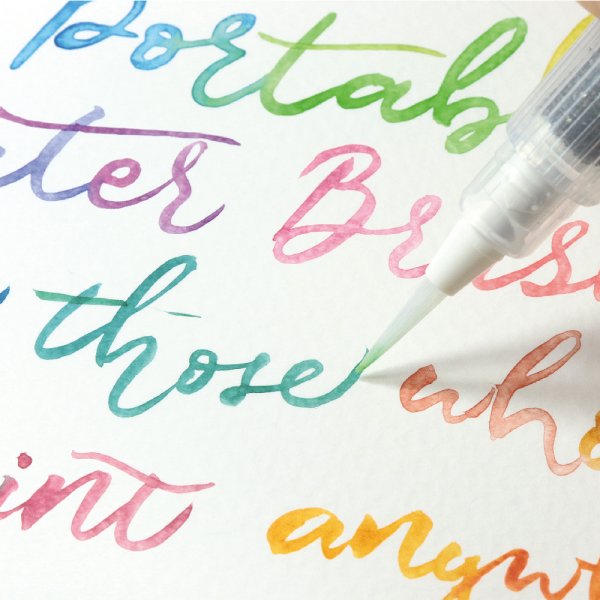 Portab
ter Brus
those who
int anyw